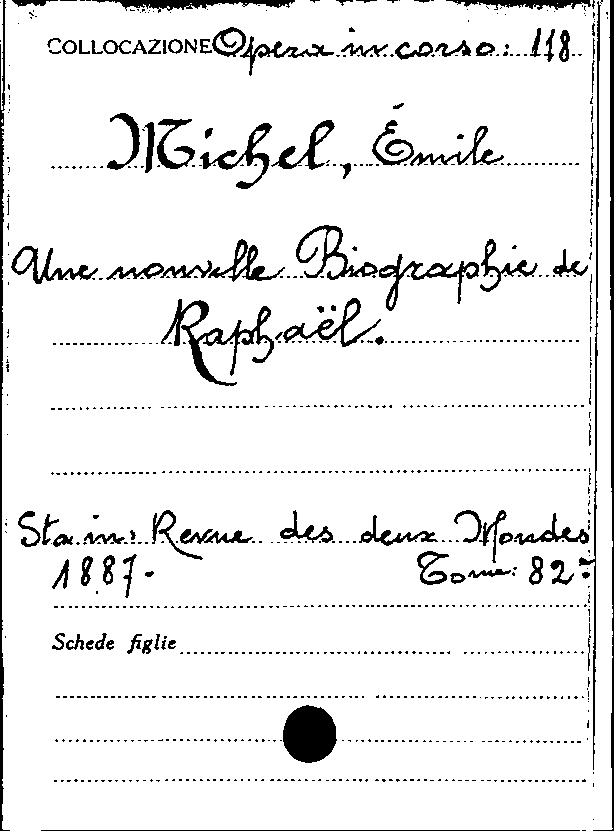 COLLOCAZIONE Opera in corso: 118
Michel, Émile
Une nouvelle Biographie de
Raphaël.
Sta in: Revue des deux Mondes
1887- Tome: 82=
Schede figlie